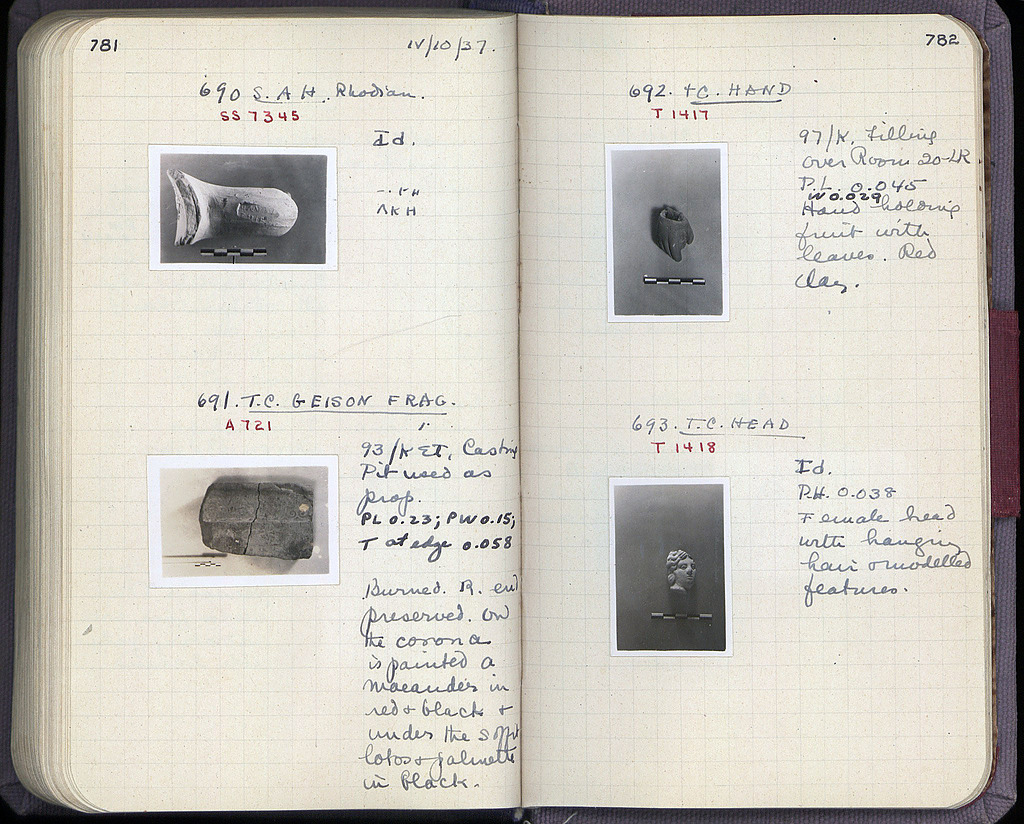 781
IV/10/37.
690 S.A.H. Rhodian.
SS 7345
Id.
ΛΚΗ
691. T.C. GEISON FRAG.
A 721
93/ΚΣΤ, Casting
Pit used as
prop.
PL 0.23; PW 0.15;
T at edge 0.058
Burned. R. end
preserved. On
the corona
is painted a
maeander in
red & black &
under the soffit
lotos & palmette
in black.
782
692. TC. HAND
T 1417
97/Κ. Filling
over Room 20-LR.
P.L. 0.045
W 0.029
Hand holding
fruit with
leaves. Red
clay.
693. T.C. HEAD
T 1418
Id.
P.H. 0.038
Female head
with hanging
hair & modelled
features.